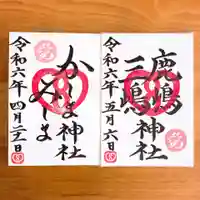 鹿嶋
三嶋
神社
令和六年五月六日
かしま
みしま
神社
令和六年四月日